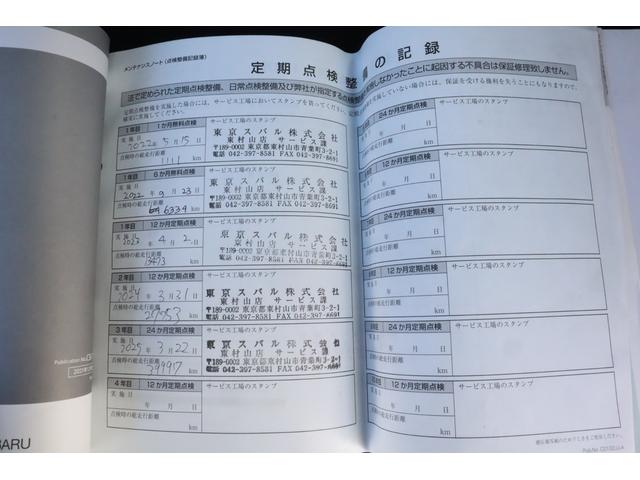 メンテナンスノート（点検整備記録簿）
定期点検整備の記録
法で定められた定期点検整備、日常点検整備及び弊社が指定する点検整備
しなかったことに起因する不具合は保証修理致しません。
定期点検整備を実施した場合には、サービス工場においてスタンプを貰ってください。
確実に実施してください。
実施していない場合には、保証を受ける権利を失うことにもなりますので、
1年目 1か月無料点検 サービス工場のスタンプ
実施日
2022年5月15日
点検時の総走行距離
1111 km
東京スバル株式会社
東村山店 サービス課
〒189-0002 東京都東村山市青葉町3-2-1
電話 042-397-8581 FAX 042-397-8691
1年目 6か月無料点検 サービス工場のスタンプ
実施日
2022年9月23日
点検時の総走行距離
6334 km
東京スバル株式会社
東村山店 サービス課
〒189-0002 東京都東村山市青葉町3-2-1
電話 042-397-8581 FAX 042-397-8691
1年目 12か月定期点検 サービス工場のスタンプ
実施日
2023年4月2日
点検時の総走行距離
13473 km
京スバル株式会社
東村山店 サービス課
〒189-0002 東京都東村山市青葉町3-2-1
電話 042-397-8581 FAX 042-397-8691
2年目 12か月定期点検 サービス工場のスタンプ
実施日
2024年3月31日
点検時の総走行距離
km
東京スバル株式会社
東村山店 サービス課
〒189-0002 東京都東村山市青葉町3-2-1
電話 042-397-8581 FAX 042-397-8691
3年目 24か月定期点検 サービス工場のスタンプ
実施日
2025年3月22日
点検時の総走行距離
39917 km
東京スバル株式会社
東村山店 サービス課
〒189-0002 東京都東村山市青葉町3-2-1
電話 042-397-8581 FAX 042-397-8691
4年目 12か月定期点検 サービス工場のスタンプ
実施日
年 月 日
点検時の総走行距離
km
24か月定期点検 サービス工場のスタンプ
年 月 日
総走行距離
km
12か月定期点検 サービス工場のスタンプ
年 月 日
総走行距離
km
24か月定期点検 サービス工場のスタンプ
年 月 日
総走行距離
km
12か月定期点検 サービス工場のスタンプ
年 月 日
総走行距離
km
24か月定期点検 サービス工場のスタンプ
年 月 日
総走行距離
km
12か月定期点検 サービス工場のスタンプ
年 月 日
総走行距離
km
Publication No.
BARU